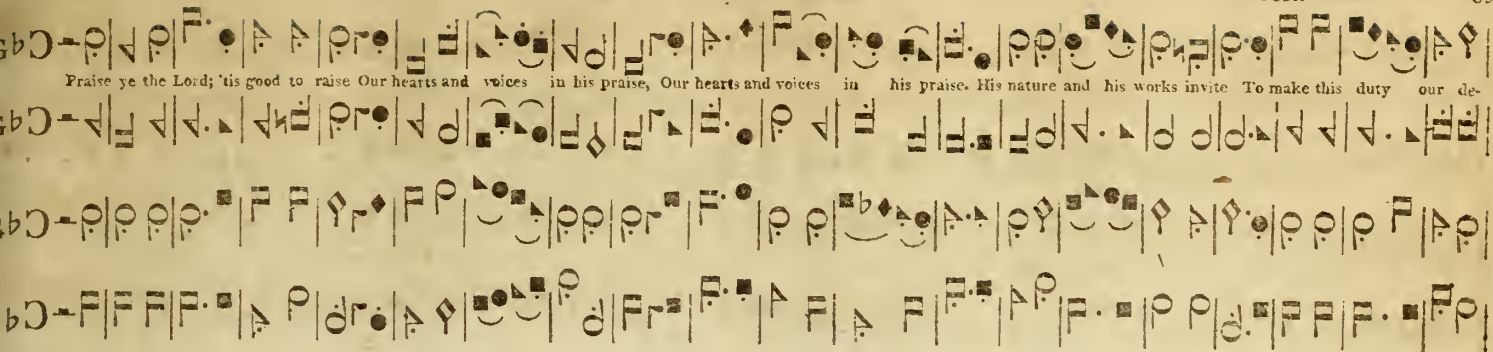 Praise ye the Lord; 'tis good to raise Our hearts and voices in his praise, Our hearts and voices in his praise. His nature and his works invite To make this duty our de-